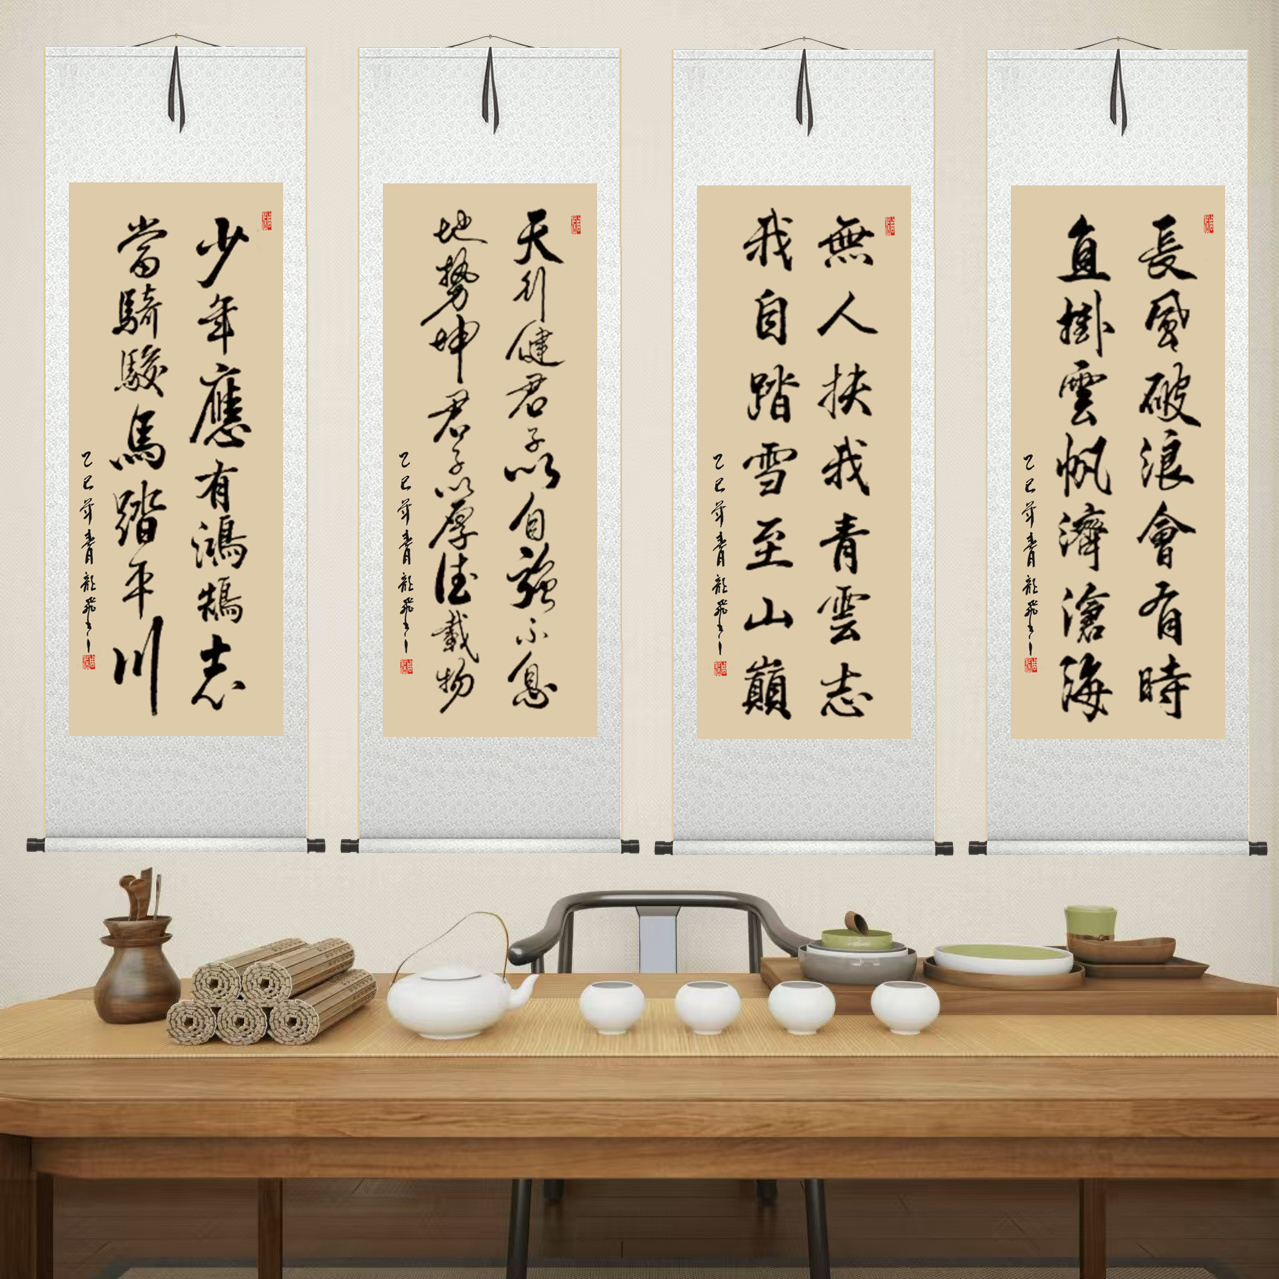 長風破浪會有時
直掛雲帆濟滄海
乙巳年
無人扶我青雲志
我自踏雪至山巔
乙巳年
天行健君子以自強不息
地勢坤君子以厚德載物
乙巳年
少年應有鴻鵠志
當騎駿馬踏平川
乙巳年